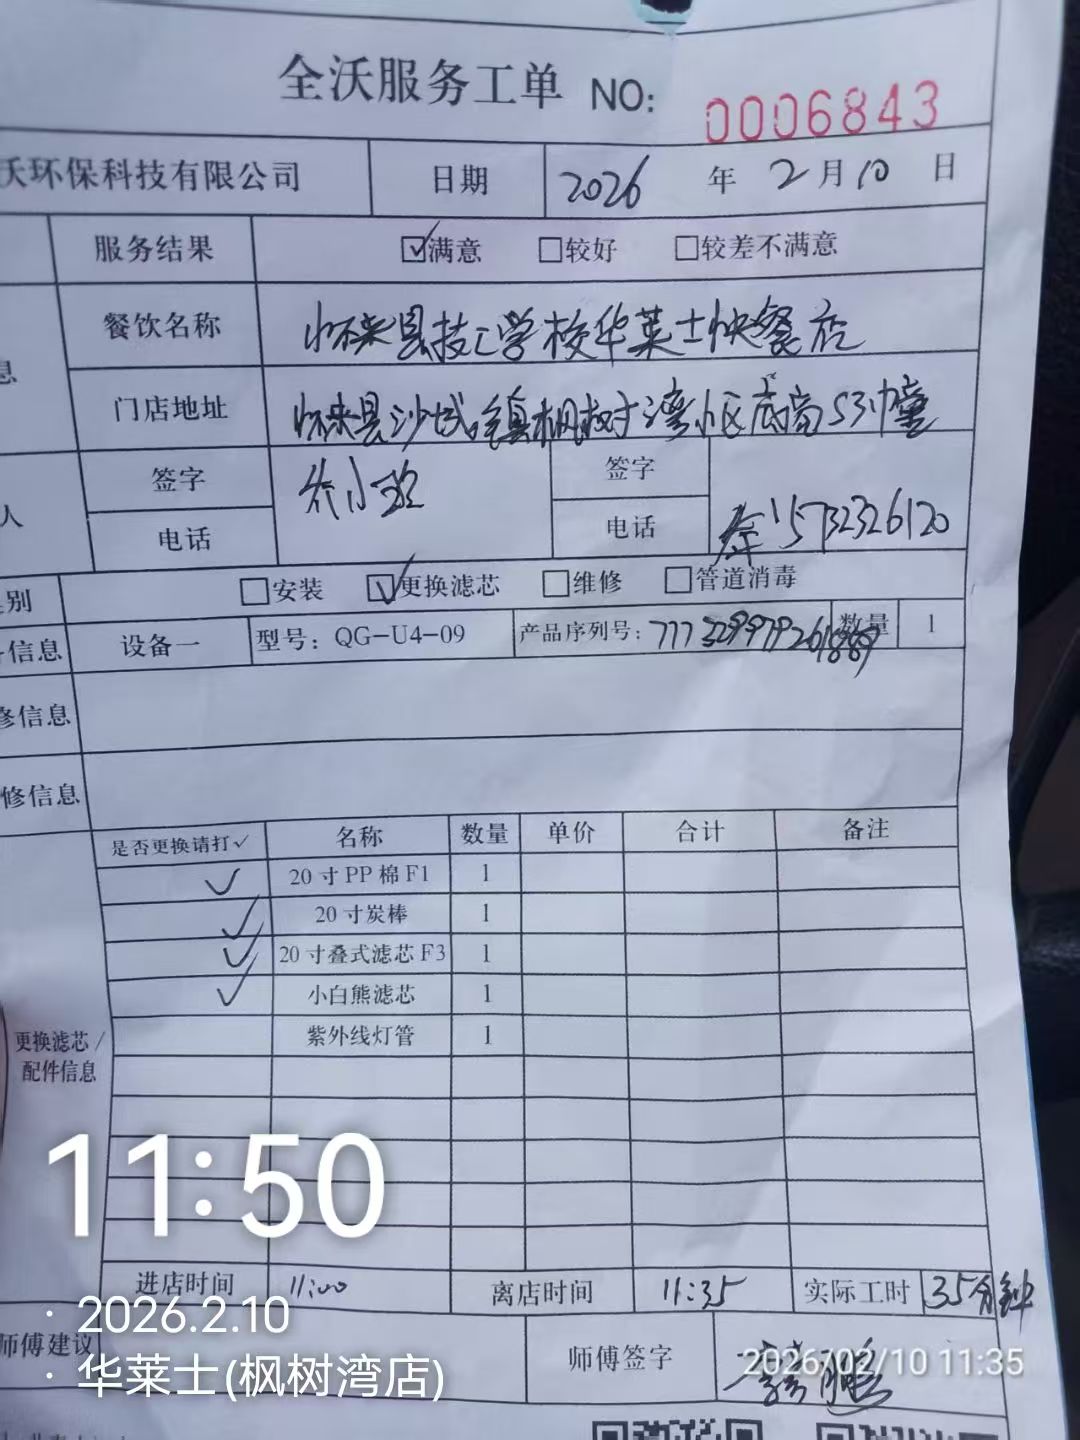 全沃服务工单 NO: 0006843
沃环保科技有限公司 日期 2026 年 2 月 10 日
服务结果 ☑满意 □较好 □较差不满意
息
餐饮名称 怀来县技工学校华莱士快餐店
门店地址 怀来县沙城镇枫树湾小区底商S3幢
人
签字 小 签字
电话 电话 15732326120
别 □安装 ☑更换滤芯 □维修 □管道消毒
信息 设备一 型号: QG-U4-09 产品序列号: 数量 1
修信息
修信息
是否更换请打✓ 名称 数量 单价 合计 备注
✓ 20寸PP棉F1 1
✓ 20寸炭棒 1
✓ 20寸叠式滤芯F3 1
✓ 小白熊滤芯 1
紫外线灯管 1
更换滤芯/
配件信息
11:50
进店时间 11:00 离店时间 11:35 实际工时 35分钟
· 2026.2.10
师傅建议 师傅签字
2026/02/10 11:35
· 华莱士(枫树湾店)